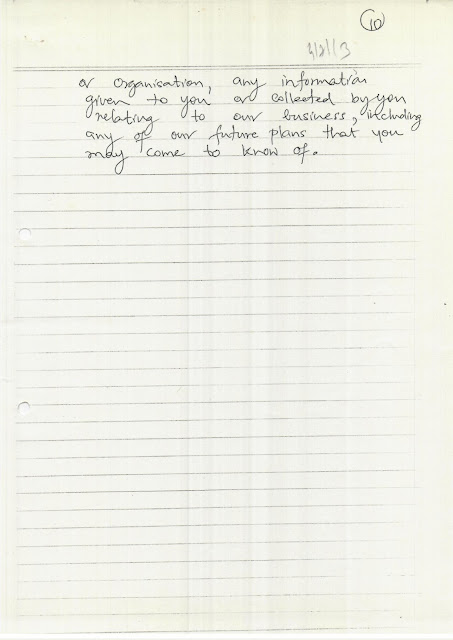 10
or organisation, any information
given to you or collected by you
relating to our business, including
any of our future plans that you
may come to know of.